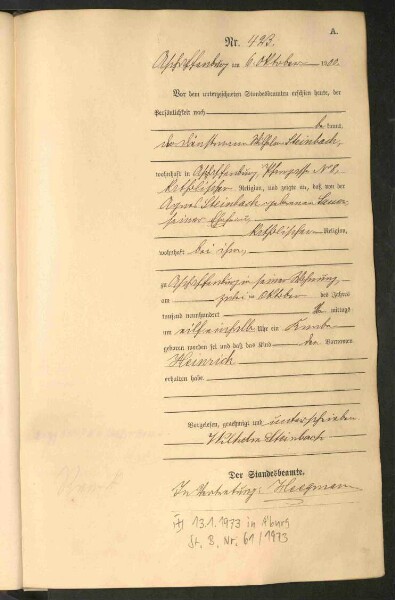 A.
Nr. 423.
Aschaffenburg am 6. Oktober 1900.
Vor dem unterzeichneten Standesbeamten erschien heute, der
Persönlichkeit nach
be kannt,
der Dienstmann Wilhelm Steinbach,
wohnhaft in Aschaffenburg,
katholischer Religion, und zeigte an, daß von der
Agnes Steinbach gebornen
seiner Ehefrau,
katholischer Religion,
wohnhaft bei ihm,
zu Aschaffenburg in seiner Wohnung,
am Oktober des Jahres
tausend neunhundert mittags
um Uhr ein Knabe
geboren worden sei und daß das Kind den Vornamen
Heinrich
erhalten habe.
Vorgelesen, genehmigt und unterschrieben
Wilhelm Steinbach
Der Standesbeamte.
In Vertretung:
13.1.1973 in A'burg
St. B. Nr. 61/1973